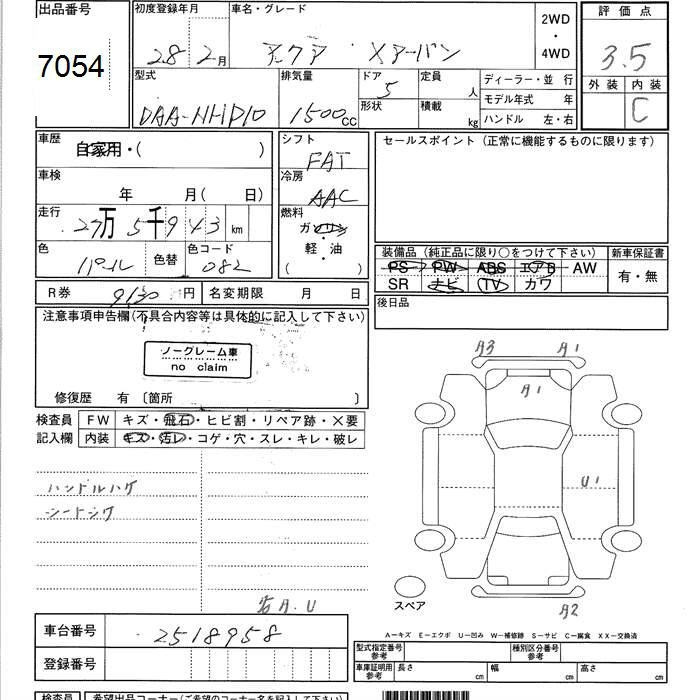 出品番号 初度登録年月 車名・グレード 2WD ・ 4WD 評価点
7054 28 2月 アクア Xアーバン 3.5
型式 排気量 ドア 定員 人 ディーラー・並行 外装 内装
DAA-NHP10 1500cc 5 形状 積載 kg モデル年式 年 C
ハンドル 左・右
車歴 自家用・( ) シフト FAT セールスポイント (正常に機能するものに限ります)
車検 年 月(日) 冷房 AAC
走行 27万5千943km 燃料 ガソリン
色 パール 色替 色コード 082 軽・油 ( )
装備品 (純正品に限り○をつけて下さい) 新車保証書
PS PW ABS エアB AW 有・無
SR ナビ TV カワ
R券 9130円 名変期限 月 日 後日品
注意事項申告欄(不具合内容等は具体的に記入して下さい)
ノークレーム車
no claim
修復歴 有 〔箇所 〕
検査員 FW キズ・飛石・ヒビ割・リペア跡・×要
記入欄 内装 キズ・汚レ・コゲ・穴・スレ・キレ・破レ
ハンドルハゲ
シートシワ
A3 A1
A1
U1
A2
スペア
A.U
A－キズ E－エクボ U－凹み W－補修跡 S－サビ C－腐食 XX－交換済
車台番号 2518958
登録番号
型式指定番号 参考 種別区分番号 参考
車庫証明用 参考 長さ cm 幅 cm 高さ cm
検査員 希望出品コーナー(ご希望のコーナー名を記入